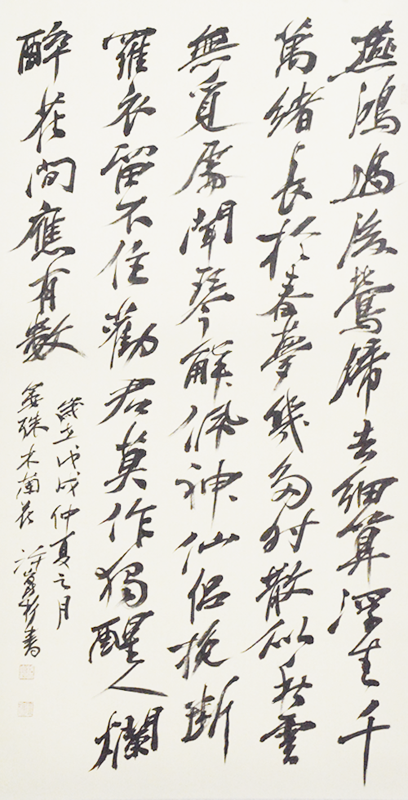 燕鴻過後鶯歸去細算浮生千
萬緒長於春夢幾多時散似秋雲
無覓處聞琴解佩神仙侶挽斷
羅衣留不住勸君莫作獨醒人爛
醉花間應有數
歲在戊戌仲夏之月
晏殊木蘭花 書